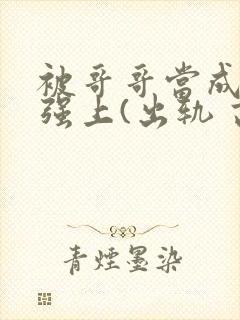 被哥哥當成
强上(出轨
青煙墨染